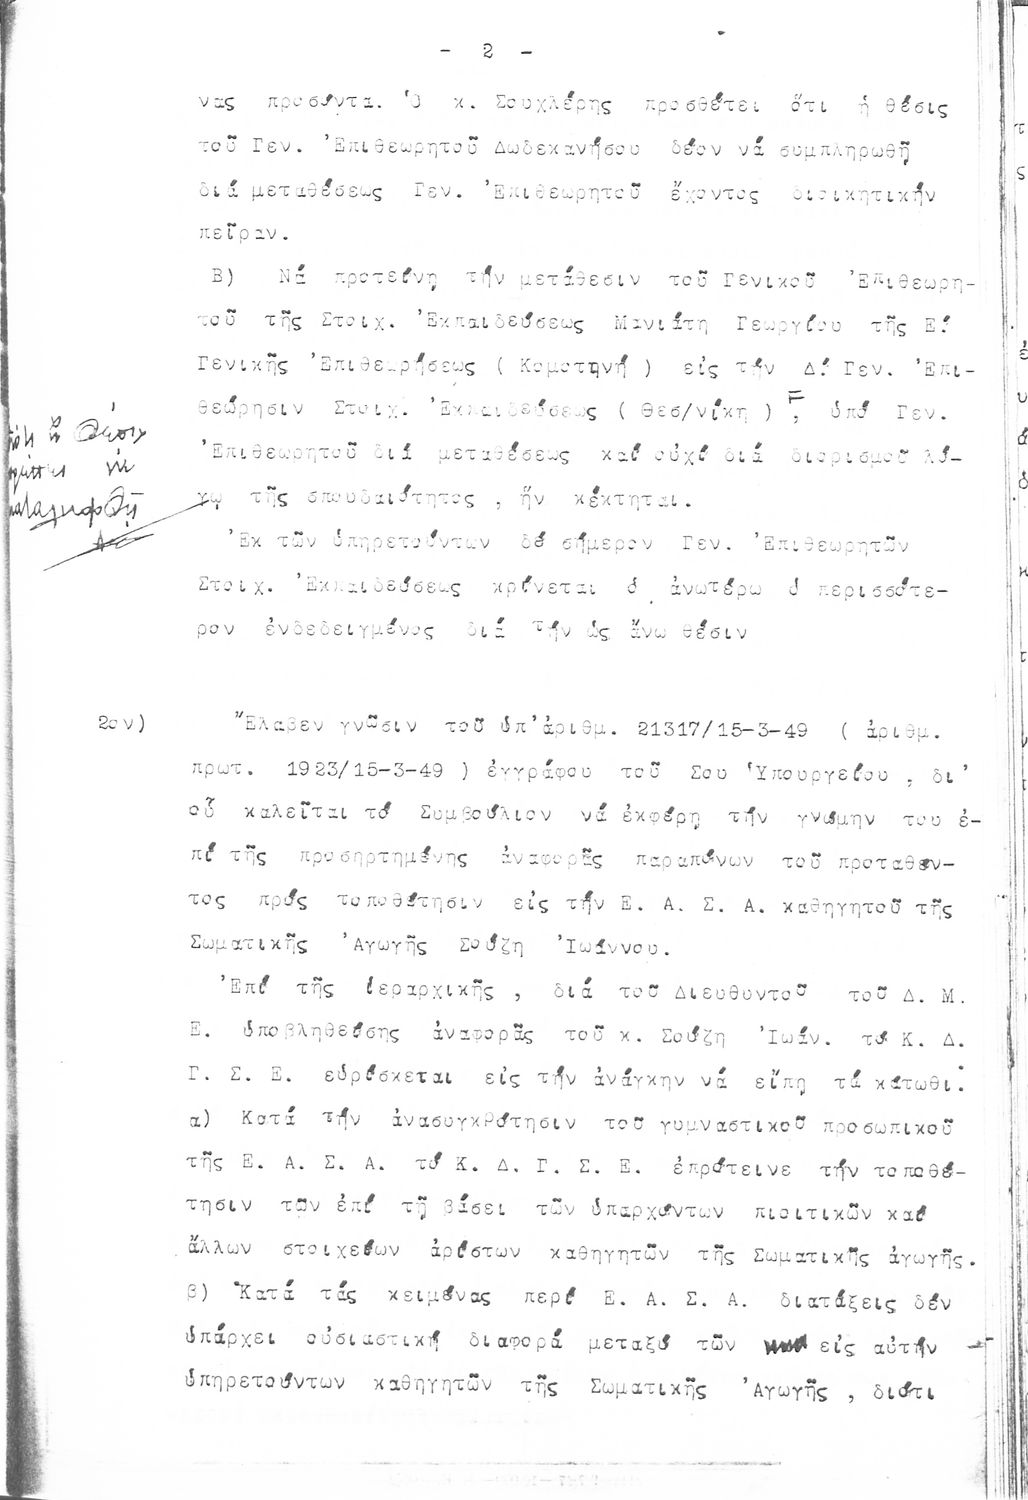 - 2 -
νας προσόντα. Ὁ κ. Σουχλέρης προσθέτει ὅτι ἡ θέσις
τοῦ Γεν. Ἐπιθεωρητοῦ Δωδεκανήσου δέον νά συμπληρωθῆ
διά μεταθέσεως Γεν. Ἐπιθεωρητοῦ ἔχοντος διοικητικήν
πεῖραν.
Β) Νά προτείνη τήν μετάθεσιν τοῦ Γενικοῦ Ἐπιθεωρη-
τοῦ τῆς Στοιχ. Ἐκπαιδεύσεως Μανιάτη Γεωργίου τῆς Ε΄
Γενικῆς Ἐπιθεωρήσεως ( Κομοτηνή ) εἰς τήν Δ΄ Γεν. Ἐπι-
θεώρησιν Στοιχ. Ἐκπαιδεύσεως ( Θεσ/νίκη ) , ὑπό Γεν.
Ἐπιθεωρητοῦ διά μεταθέσεως καί οὐχί διά διορισμοῦ λό-
γῳ τῆς σπουδαιότητος , ἥν κέκτηται.
Ἐκ τῶν ὑπηρετούντων δέ σήμερον Γεν. Ἐπιθεωρητῶν
Στοιχ. Ἐκπαιδεύσεως κρίνεται ὁ ἀνωτέρω ὁ περισσότε-
ρον ἐνδεδειγμένος διά τήν ὡς ἄνω θέσιν
2ον) Ἔλαβεν γνῶσιν τοῦ ὑπ' ἀριθμ. 21317/15-3-49 ( ἀριθμ.
πρωτ. 1923/15-3-49 ) ἐγγράφου τοῦ Σου Ὑπουργείου , δι'
οὗ καλεῖται τό Συμβούλιον νά ἐκφέρη τήν γνώμην του ἐ-
πί τῆς προσηρτημένης ἀναφορᾶς παραπόνων τοῦ προταθέν-
τος πρός τοποθέτησιν εἰς τήν Ε. Α. Σ. Α. καθηγητοῦ τῆς
Σωματικῆς Ἀγωγῆς Σούζη Ἰωάννου.
Ἐπί τῆς ἱεραρχικῆς , διά τοῦ Διευθυντοῦ τοῦ Δ. Μ.
Ε. ὑποβληθείσης ἀναφορᾶς τοῦ κ. Σούζη Ἰωάν. τό Κ. Δ.
Γ. Σ. Ε. εὑρίσκεται εἰς τήν ἀνάγκην νά εἴπη τά κάτωθι:
α) Κατά τήν ἀνασυγκρότησιν τοῦ γυμναστικοῦ προσωπικοῦ
τῆς Ε. Α. Σ. Α. τό Κ. Δ. Γ. Σ. Ε. ἐπρότεινε τήν τοποθέ-
τησιν τῶν ἐπί τῆ βάσει τῶν ὑπαρχόντων ποιοτικῶν καί
ἄλλων στοιχείων ἀρίστων καθηγητῶν τῆς Σωματικῆς ἀγωγῆς.
β) Κατά τάς κειμένας περί Ε. Α. Σ. Α. διατάξεις δέν
ὑπάρχει οὐσιαστική διαφορά μεταξύ τῶν εἰς αὐτήν
ὑπηρετούντων καθηγητῶν τῆς Σωματικῆς Ἀγωγῆς , διότι